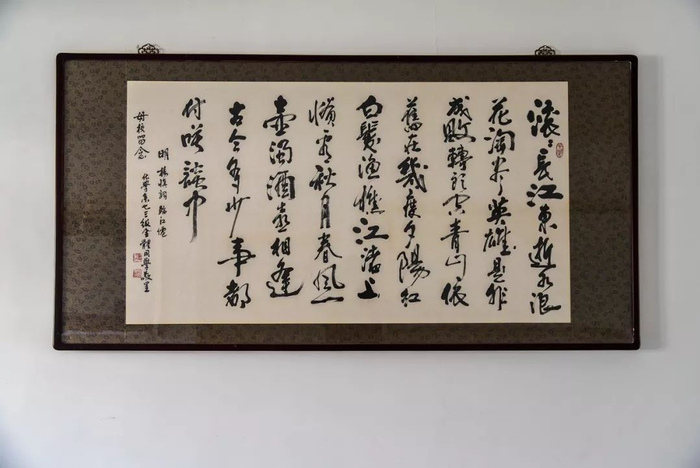 滚〻長江東逝水浪
花淘尽英雄是非
成敗轉頭空青山依
舊在幾度夕陽红
白髮漁樵江渚上
惯看秋月春风一
壶濁酒喜相逢
古今多少事都
付咲談中
明 楊慎詞 臨江僊
母校留念
化學系七三级全體同學敬呈